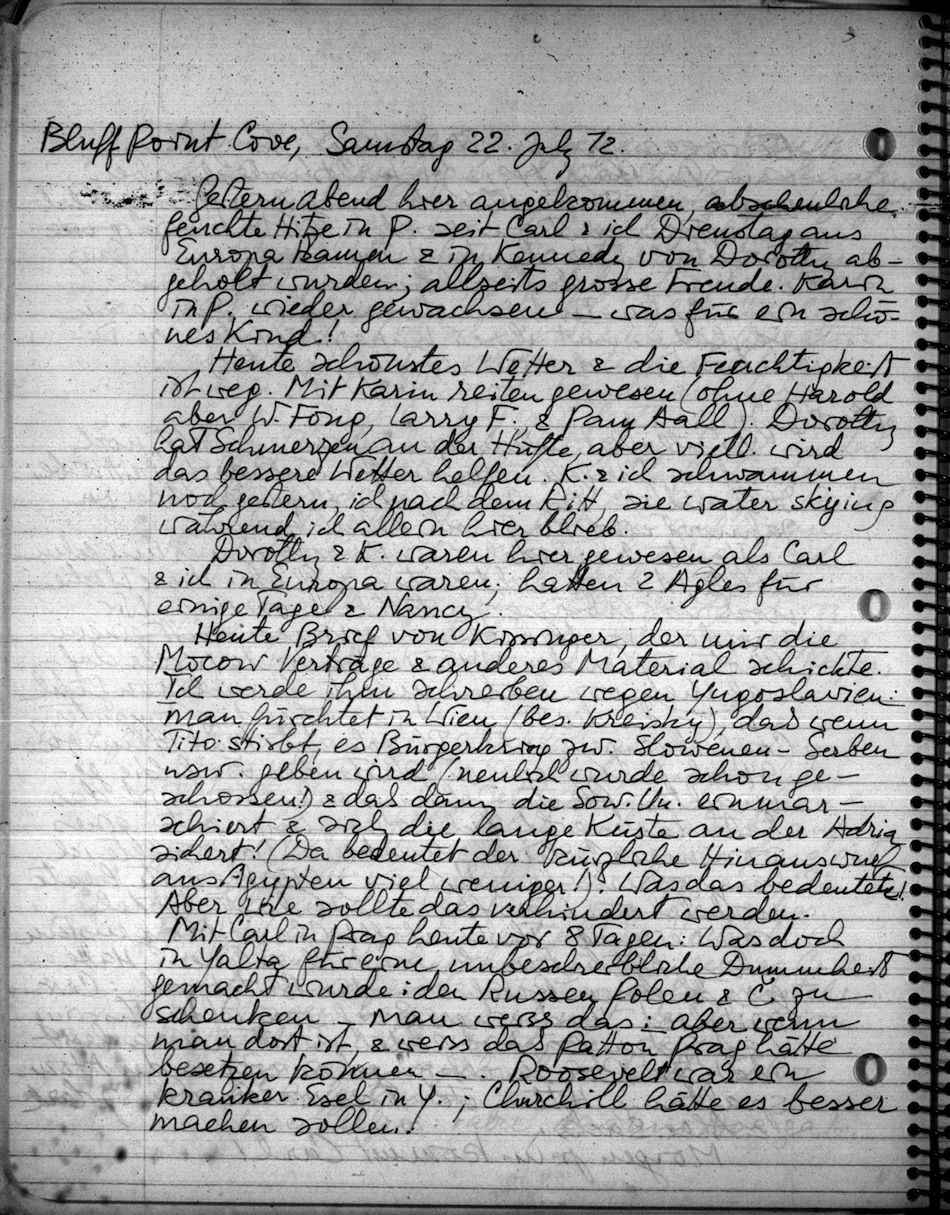 Bluff Point Cove, Samstag 22. July 72.
Gestern abend hier angekommen, abscheuliche
feuchte Hitze in P. seit Carl & ich Dienstag aus
Europa kamen & in Kennedy von Dorothy ab-
geholt wurden; allseits grosse Freude. Karin
in P. wieder gewachsen – was für ein schö-
nes Kind!
Heute schönstes Wetter & die Feuchtigkeit
ist weg. Mit Karin reiten gewesen (ohne Harold
aber W. Fong, Larry F. & Pam Aall). Dorothy
hat Schmerzen an der Hüfte, aber viell. wird
das bessere Wetter helfen. K. & ich schwammen
noch gestern, ich nach dem Ritt, sie water skying
während ich allein hier blieb.
Dorothy & K. waren hier gewesen als Carl
& ich in Europa waren; hatten 2 Agles für
einige Tage & Nancy.
Heute Brief von Kissinger, der mir die
Mocow Verträge & anderes Material schickte.
Ich werde ihm schreiben wegen Yugoslavien:
man fürchtet in Wien (bes. Kreisky), das wenn
Tito stirbt, es Bürgerkrieg zw. Slowenen – Serben
usw. geben wird (neulich wurde schon ge-
schossen!) & das dann die Sow. Un. einmar-
schiert & sich die lange Küste an der Adria
sichert! (Da bedeutet der kürzliche Hinauswurf
aus Ägypten viel weniger!). Was das bedeutete!
Aber wie sollte das verhindert werden.
Mit Carl in Prag heute vor 8 Tagen: Was doch
in Yalta für eine unbeschreibliche Dummheit
gemacht wurde: den Russen Polen & Č. zu
schenken – man weiss das; aber wenn
man dort ist, & weiss das Patton Prag hätte
besetzen können –. Roosevelt war ein
kranker Esel in Y.; Churchill hätte es besser
machen sollen.